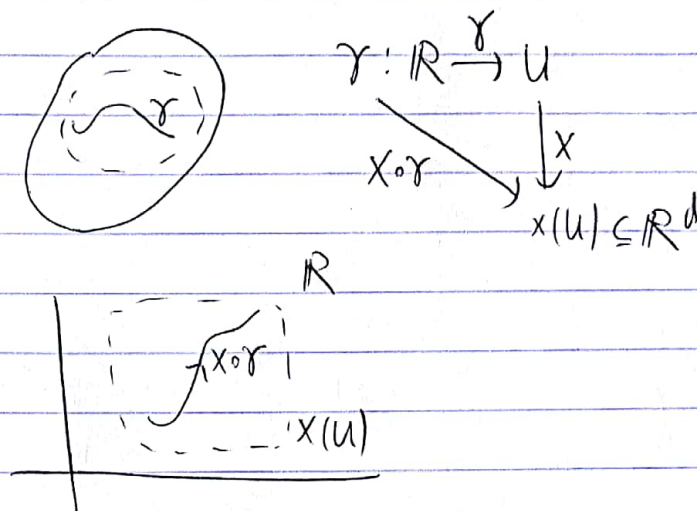 γ
γ : ℝ →^γ U
x∘γ
x
x(U) ⊆ ℝ^d
ℝ
x∘γ
x(U)